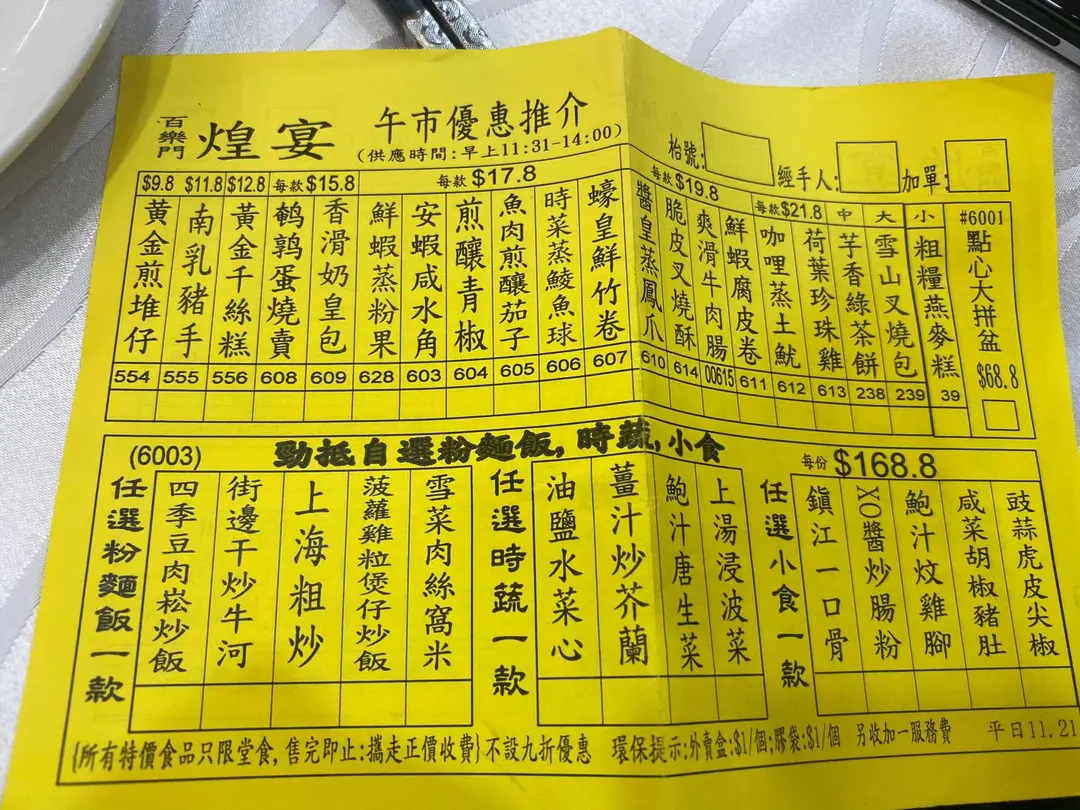 百樂門 煌宴 午市優惠推介
(供應時間:早上11:31-14:00)
枱號: 經手人: 加單:
$9.8 $11.8 $12.8 每款$15.8 每款$17.8 每款$19.8 每款$21.8 中 大 小
黃金煎堆仔 554
南乳豬手 555
黃金千絲糕 556
鵪鶉蛋燒賣 608
香滑奶皇包 609
鮮蝦蒸粉果 628
安蝦咸水角 603
煎釀青椒 604
魚肉煎釀茄子 605
時菜蒸鯪魚球 606
蠔皇鮮竹卷 607
醬皇蒸鳳爪 610
脆皮叉燒酥 614
爽滑牛肉腸 00615
鮮蝦腐皮卷 611
咖哩蒸土魷 612
荷葉珍珠雞 613
芋香綠茶餅 238
雪山叉燒包 239
粗糧燕麥糕 39
#6001 點心大拼盆 $68.8
(6003) 勁抵自選粉麵飯,時蔬,小食 每份$168.8
任選粉麵飯一款
四季豆肉崧炒飯
街邊干炒牛河
上海粗炒
菠蘿雞粒煲仔炒飯
雪菜肉絲窩米
任選時蔬一款
油鹽水菜心
薑汁炒芥蘭
鮑汁唐生菜
上湯浸波菜
任選小食一款
鎮江一口骨
XO醬炒腸粉
鮑汁炆雞腳
咸菜胡椒豬肚
豉蒜虎皮尖椒
{所有特價食品只限堂食,售完即止:攜走正價收費}不設九折優惠 環保提示:外賣盒:$1/個;膠袋:$1/個 另收加一服務費 平日11.21